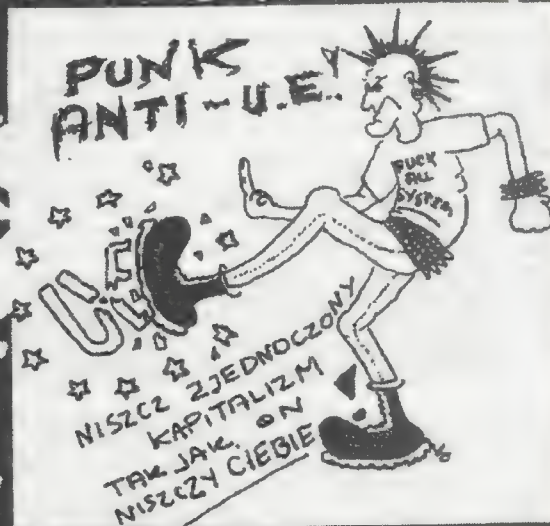 PUNK
ANTI-U.E.!
FUCK
ALL
SYSTEM
U.E
NISZCZ ZJEDNOCZONY
KAPITALIZM
TAK JAK ON
NISZCZY CIEBIE